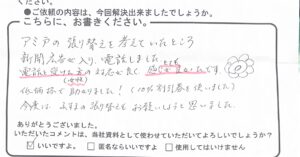 ください。
●ご依頼の内容は、今回解決出来ましたでしょうか。
こちらに、お書きください。
アミ戸の張り替えを考えていたところ
新聞広告が入り、電話しました
とても
電話を受けた方の対応が良く、感じが良かったです。
(女性)
低価格で助かりました！(10%割引券を使いました)
今度は、ふすまの張り替えもお願いしようと思いました。
ありがとうございました。
いただいたコメントは、当社資料として使わせていただいてよろしいでしょうか？
いいですよ。 □匿名ならいいですよ □使用してはいけません